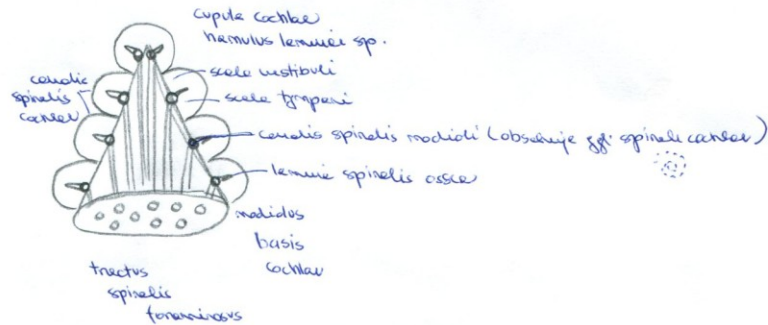 cupula cochlae
hamulus laminae sp.
canalis
spiralis
cochlae
scala vestibuli
scala tympani
canalis spiralis modioli (obsahuje ggl. spirale cochlae)
lamina spiralis ossea
modiolus
basis
cochlae
tractus
spiralis
foraminosus